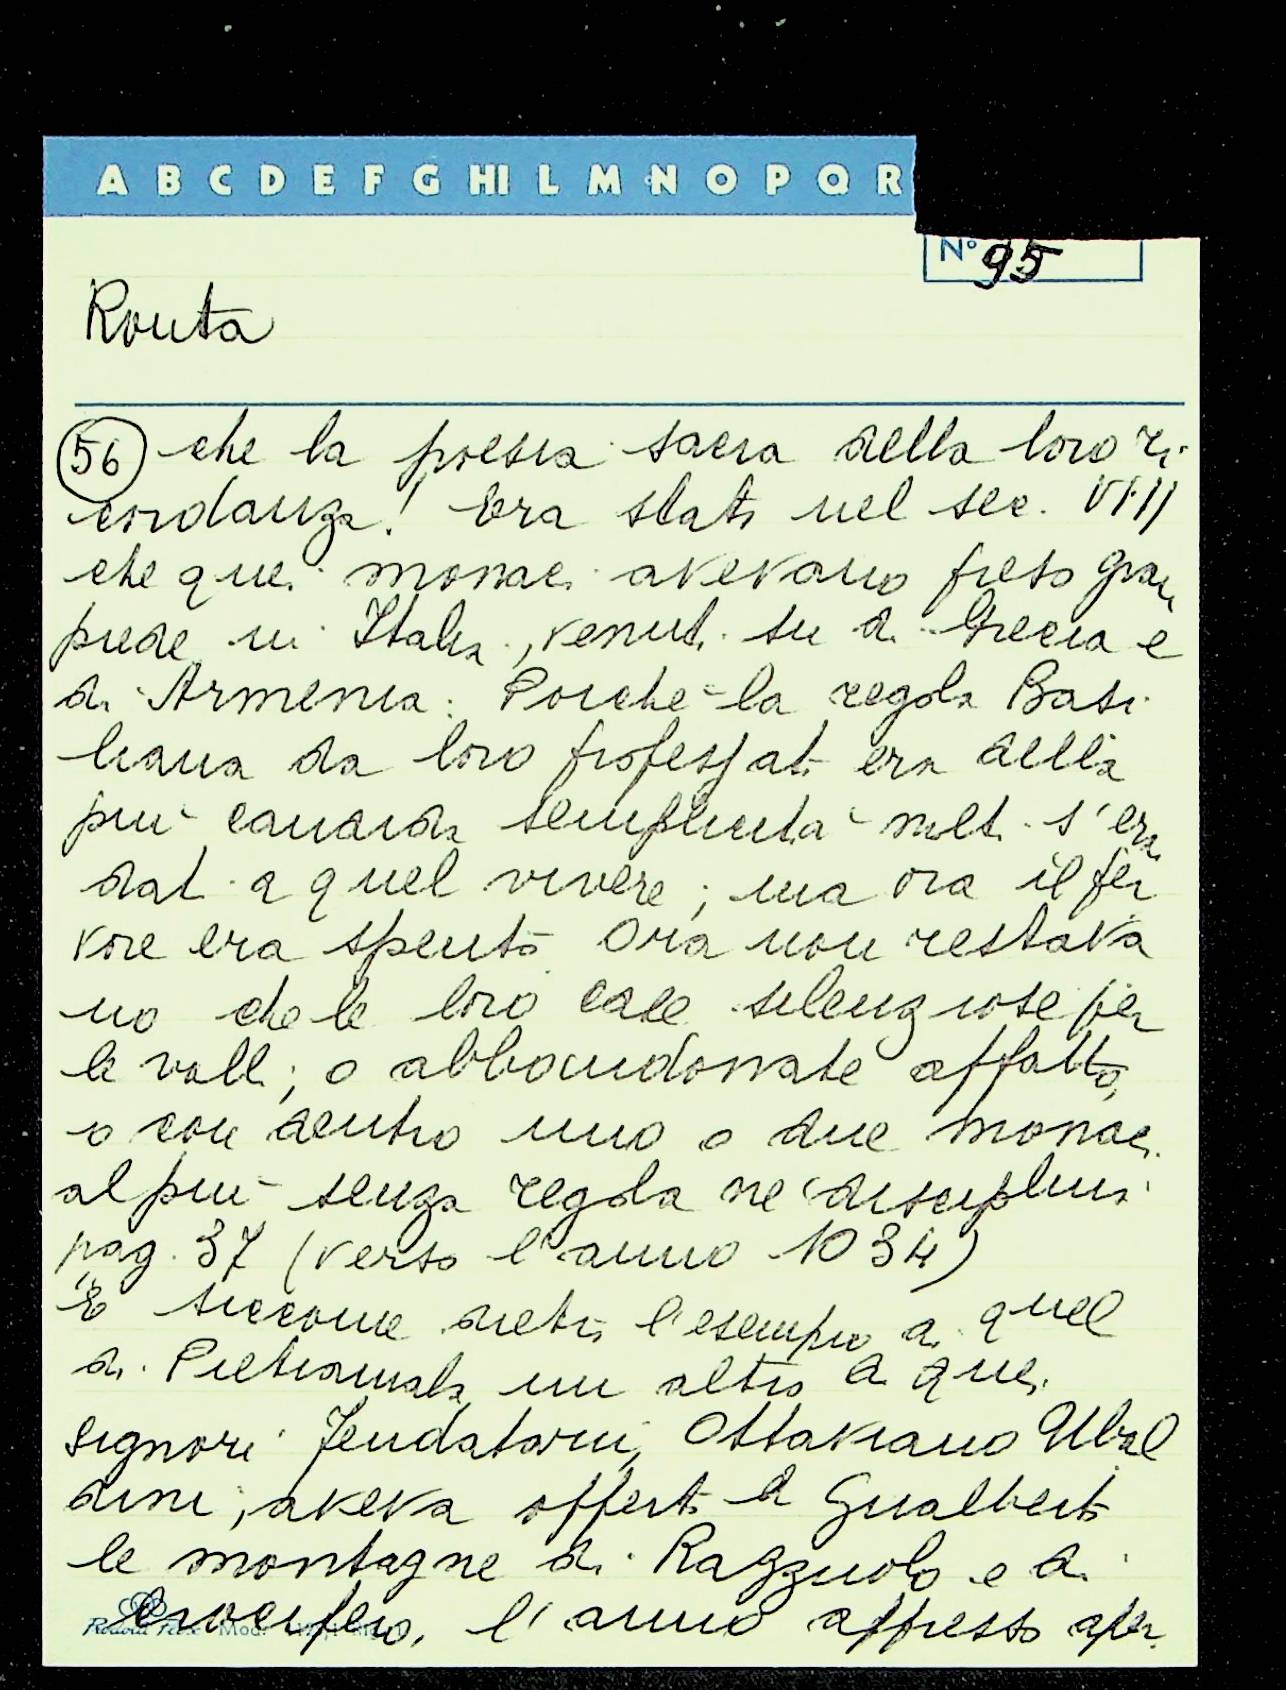 A B C D E F G HI L M N O P Q R
N° 95
Ronta
56 che la poesia sacra della loro ri-
cordanza! Era stato nel sec. VIII
che quei monaci avevano preso gran
piede in Italia, venuti su di Grecia e
di Armenia. Poichè la regola Basi-
liana da loro professata era della
più candida semplicità molti s'era
dati a quel vivere; ma ora il fer
vore era spento Ora non restava
no che le loro case silenziose per
le valli; o abbandonate affatto,
o con dentro uno o due monaci
al più senza regola nè disciplina
pag. 37 (verso l'anno 1034)
E siccome dietro l'esempio di quel
di Pietramala un altro di quei
signori feudatarii, Ottaviano Ubal
dini, aveva offerto a Gualberto
le montagne di Razzuolo e di
l'anno appresso aper